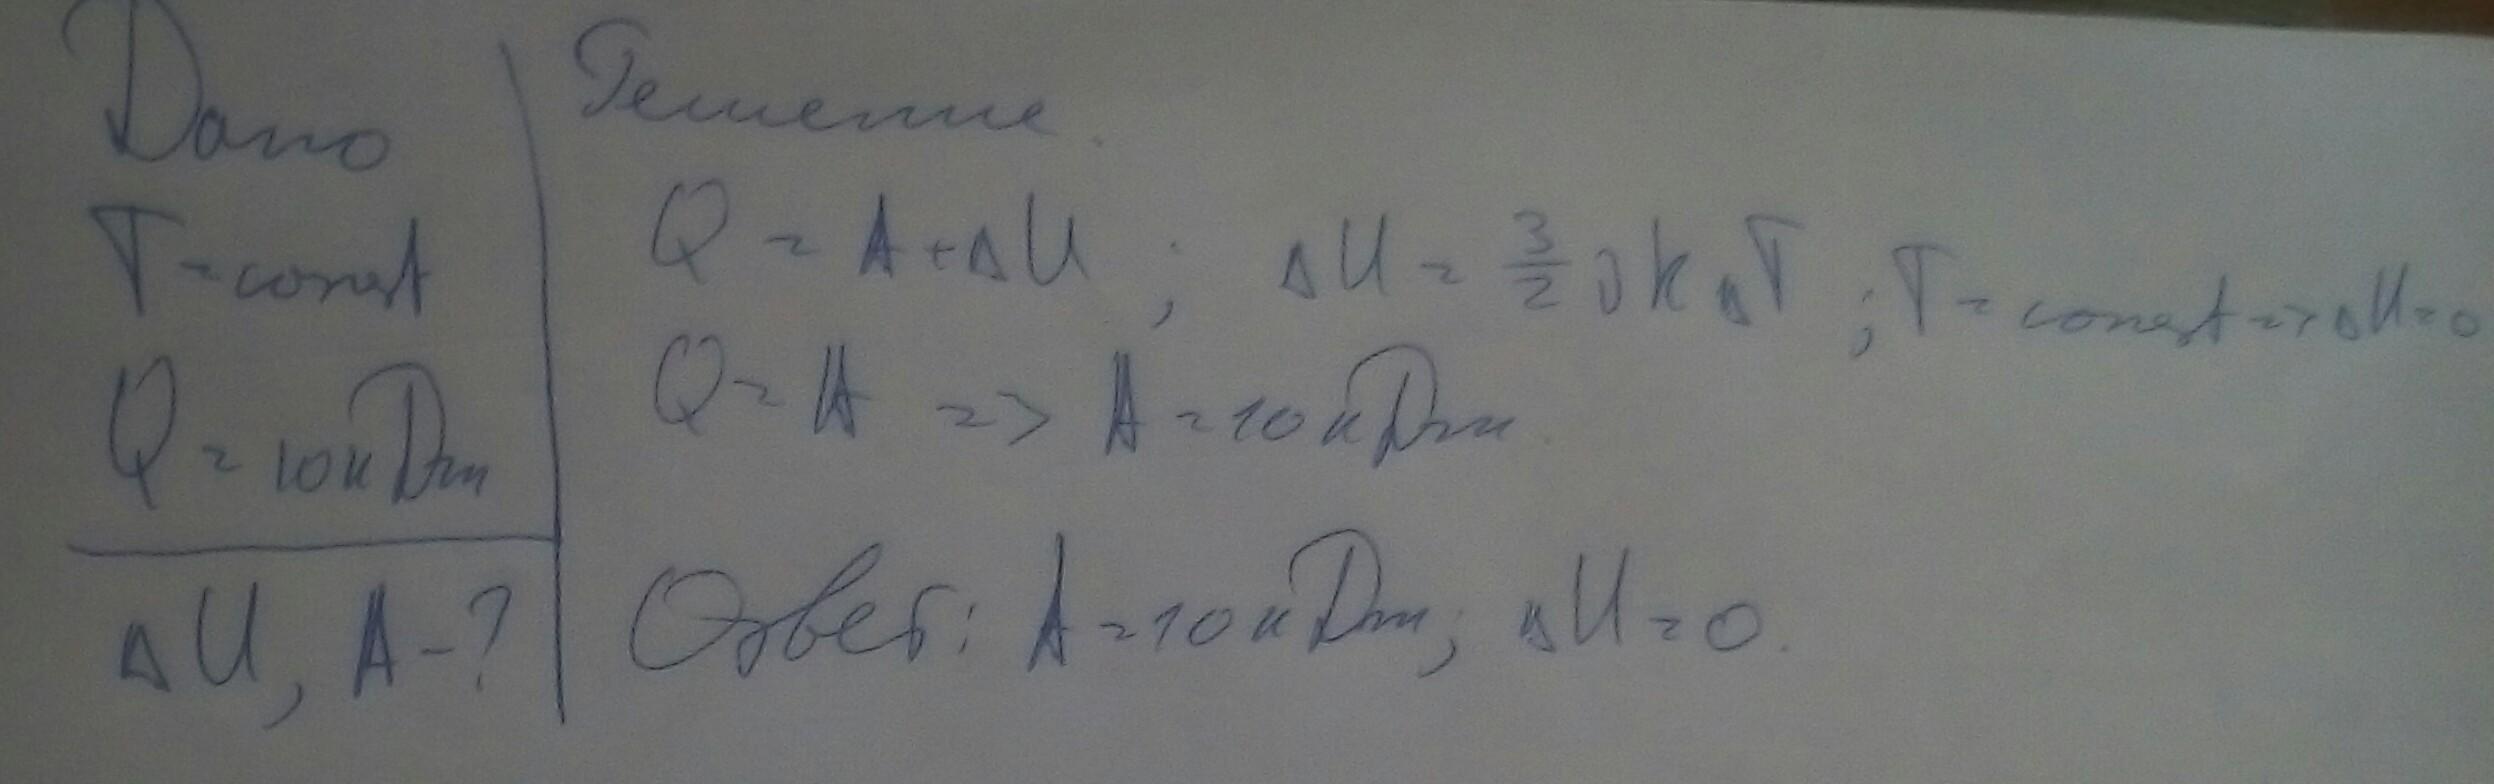 Дано
T = const
Q = 10 кДж
ΔU, A - ?
Решение.
Q = A + ΔU ; ΔU = 3/2 νkΔT ; T = const => ΔU = 0
Q = A => A = 10 кДж.
Ответ: A = 10 кДж; ΔU = 0.